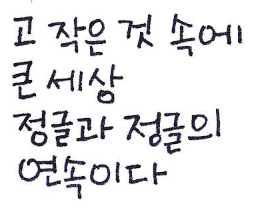 고 작은 것 속에
큰 세상
정글과 정글의
연속이다